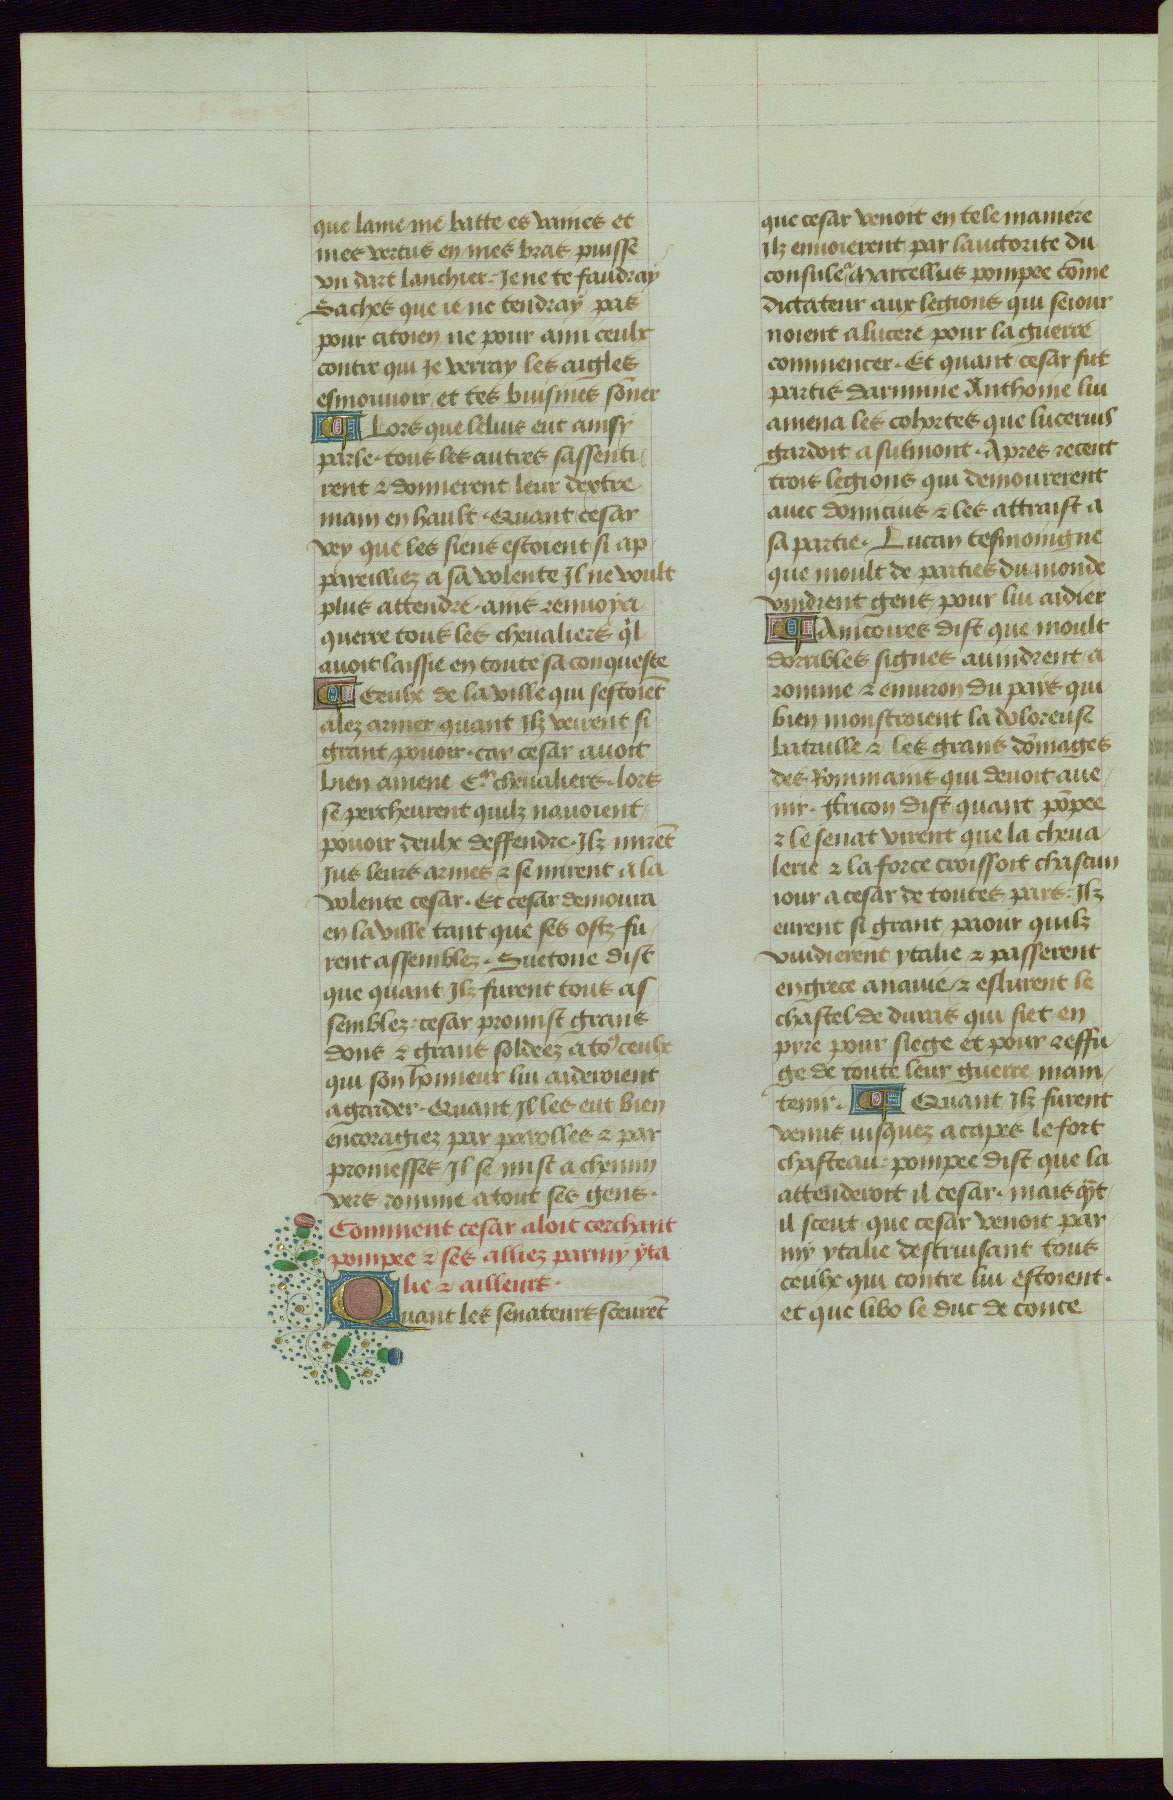 que lame me batte es vaines et
mes vertus en mes bras puisse
vn dart lanchier. Je ne te faudray
Saches que ie ne tendray pas
pour citoien ne pour ami ceulx
contre qui Je verray les aigles
esmouuoir et tes buisines sōner
Lors que lelius eut ainsy
parle. tous les autres sassenti
rent ⁊ donnerent leur dextre
main en hault. Quant cesar
vey que les siens estoient si ap
pareilliez a sa volente Il ne voult
plus attendre. ains renuoya
querre tous les cheualiers q̇l
auoit laissie en toute sa conqueste
Ceulx de la ville qui sestoiēt
alez armer quant Ilz veirent si
grant pouoir. car cesar auoit
bien amene Cᵐ cheualiers. lors
se percheurent quilz nauoient
pouoir deulx deffendre. Ilz mirēt
Jus leurs armes ⁊ se mirent a la
volente cesar. Et cesar demoura
en la ville tant que ses ostz fu
rent assemblez. Suetone dist
que quant Ilz furent tous as
semblez. cesar promist grans
dons ⁊ grans soldeez a to⁹ ceulx
qui son honneur lui aideroient
a garder. Quant Il les eut bien
encoragiez par parolles ⁊ par
promesses Il se mist a chemin
vers romme a tout ses gens.
Comment cesar aloit cerchant
pompee ⁊ ses alliez parmy yta
lie ⁊ ailleurs.
Quant les senateurs sceurēt
que cesar venoit en tele maniere
Ilz enuoierent par lauctorite du
consule marcellus pompee cōme
dictateur aux legions qui seiour
noient a lucere pour la guerre
commencer. Et quant cesar fut
partis darimine Anthoine lui
amena les cohortes que lucerius
gardoit a sulmont. Apres recent
trois legions qui demourerent
auec domicius ⁊ les attraist a
sa partie. Lucan tesmoingne
que moult de parties du monde
vindrent gens pour lui aidier
Anicoires dist que moult
dorribles signes auindrent a
romme ⁊ enuiron du pais qui
bien monstroient la doloreuse
bataille ⁊ les grans dōmages
des Rommains qui deuoit aue
nir. Ilricon dist quant pōpee
⁊ le senat virent que la cheua
lerie ⁊ la force croissoit chascun
iour a cesar de toutes pars. Ilz
eurent si grant paour quilz
vuidierent ytalie ⁊ passerent
en grece a nauie ⁊ eslurent le
chastel de duras qui siet en
pyre pour siege et pour reffu
ge de toute leur guerre main
tenir. Quant Ilz furent
venus iusquez a capes le fort
chasteau. pompee dist que la
attenderoit il cesar. mais qñt
il sceut que cesar venoit par
my ytalie destruisant tous
ceulx qui contre lui estoient.
et que libo le duc de conce